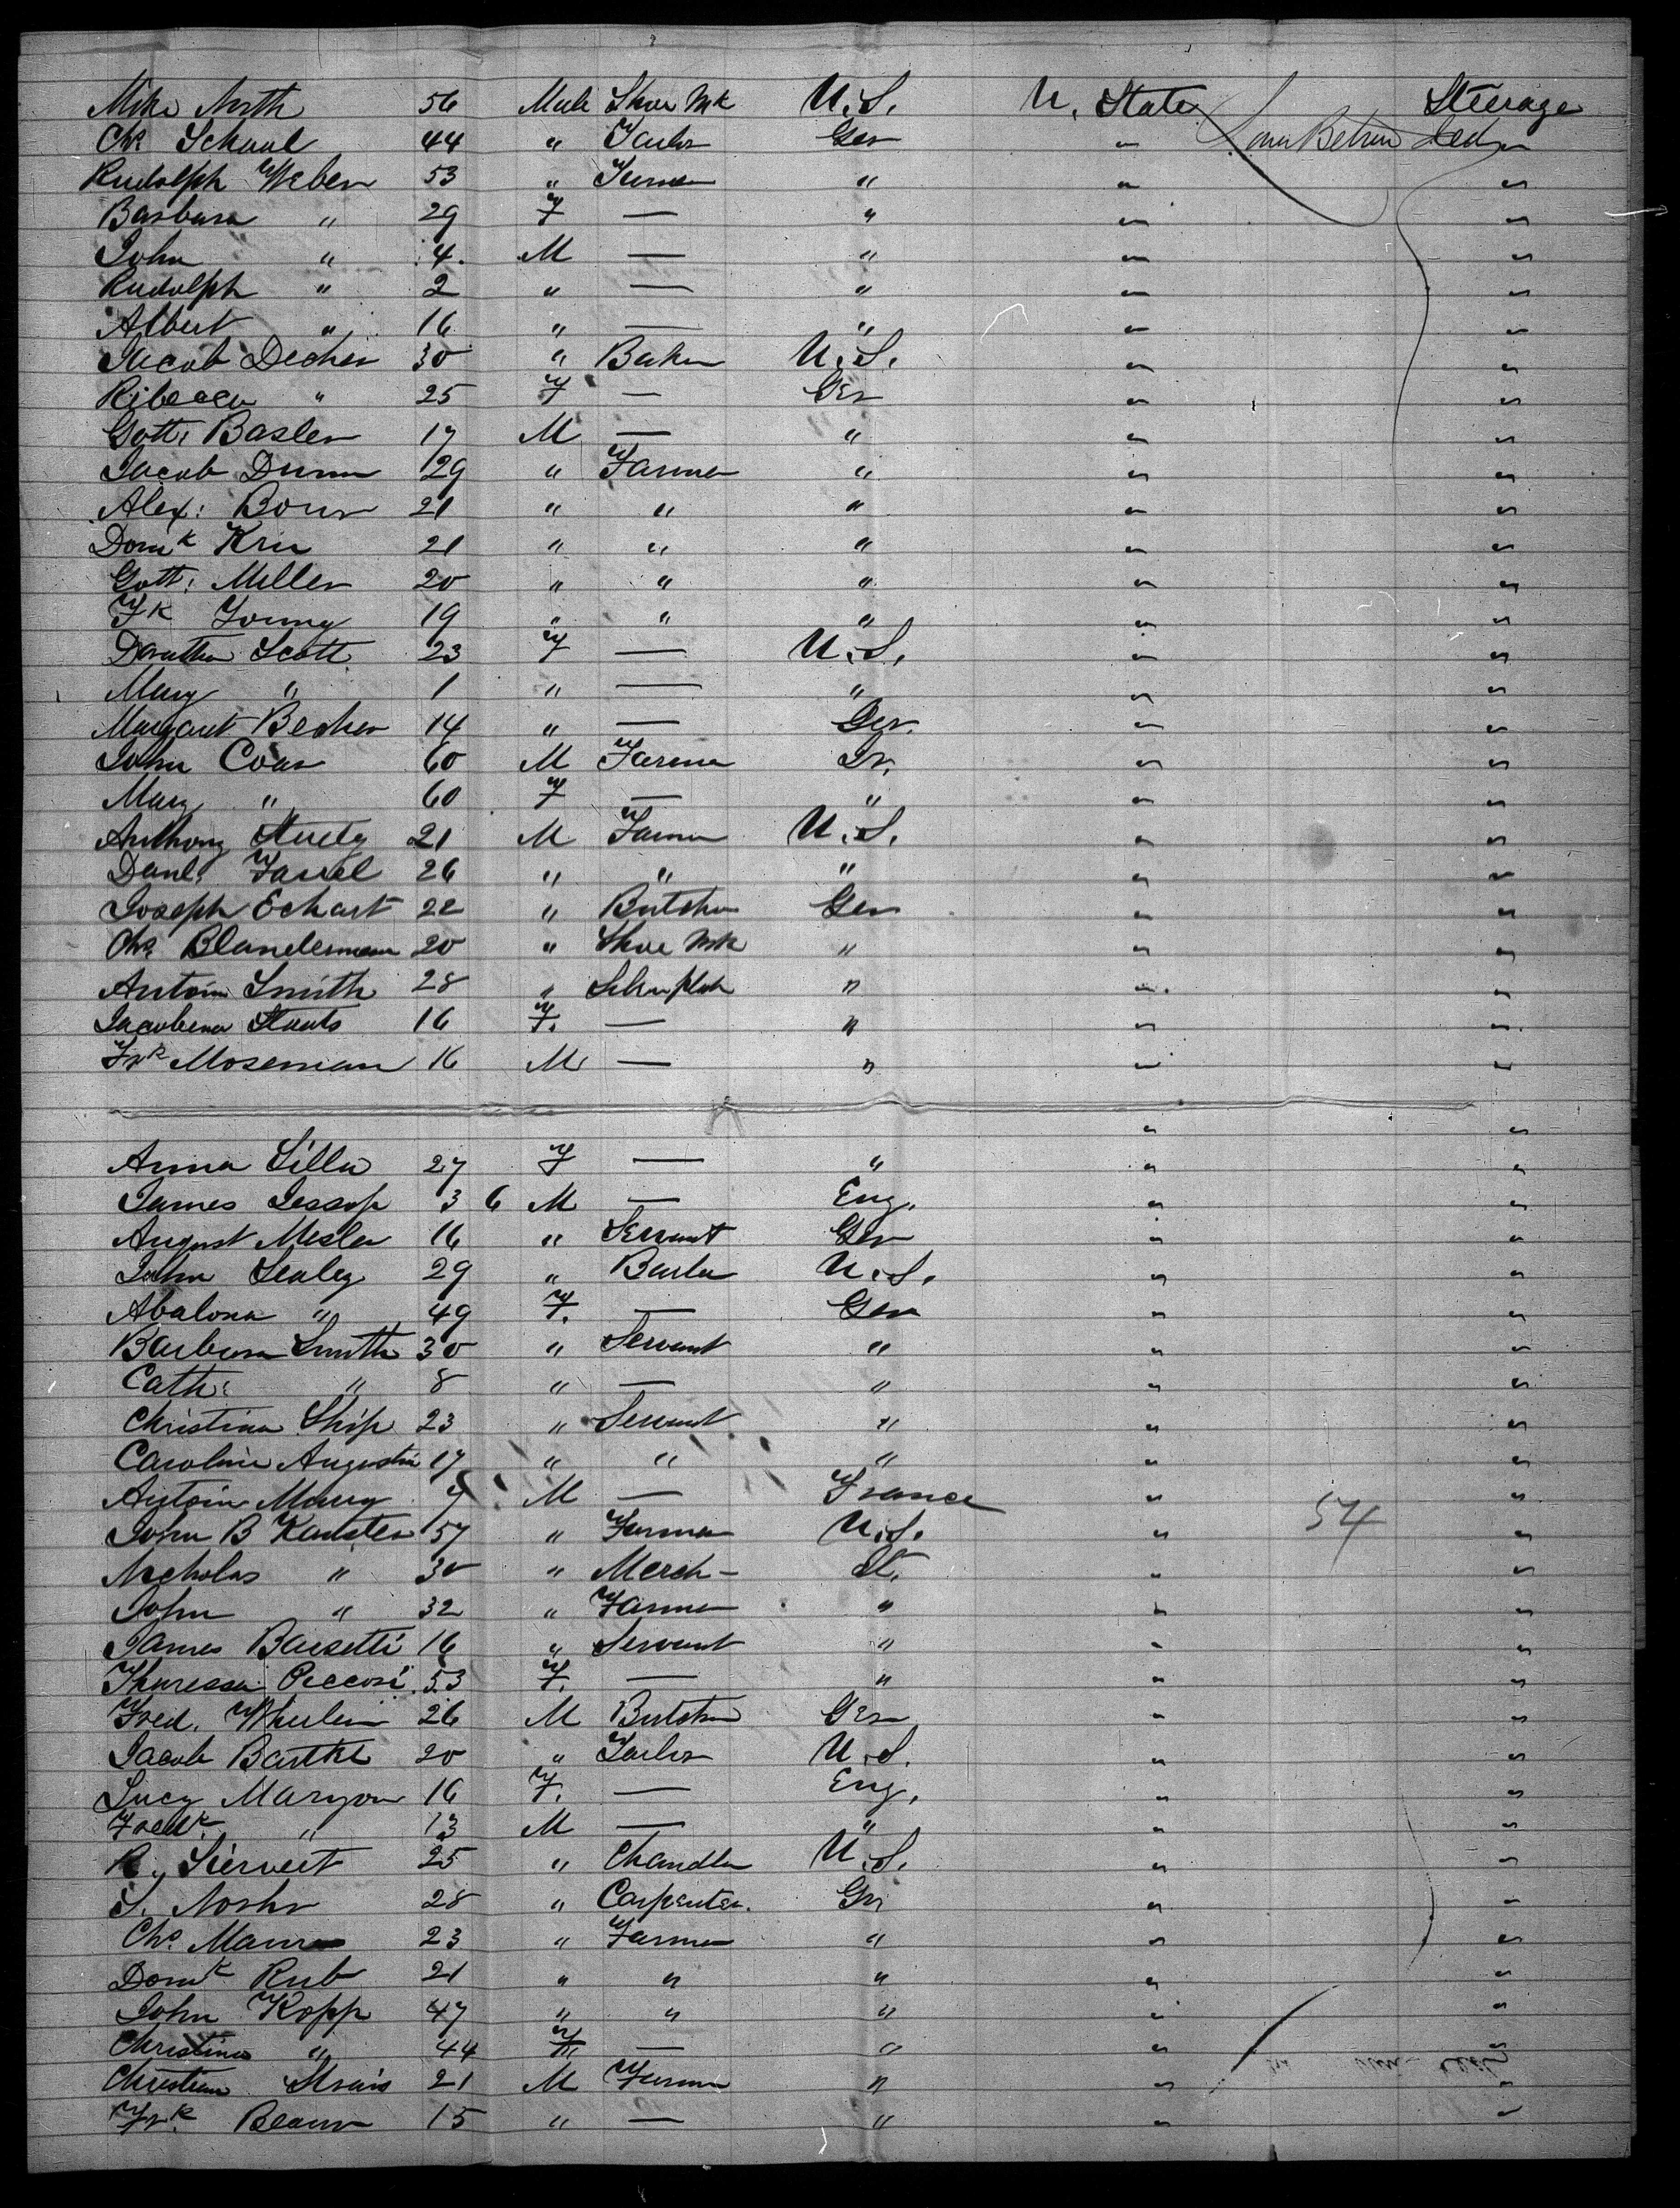 Mike North 56 Male Shoe Mk U.S. U. States Steerage
Chs Schaul 44 " Tailor Ger " "
Rudolph Weber 53 " Farmer " " "
Barbara " 29 F — " " "
John " 4 M — " " "
Rudolph " 2 " — " " "
Albert " 16 " — " " "
Jacob Decker 30 " Baker U.S. " "
Ribecca " 25 F — Ger " "
Gott: Basler 17 M — " " "
Jacob Dunn 29 " Farmer " " "
Alex: Bour 21 " " " " "
Domk Kru 21 " " " " "
Gott: Miller 20 " " " " "
Fk Young 19 " " " " "
Dorathea Scott 23 F — U.S. " "
Mary " 1 " — " " "
Margaret Becker 14 " — Ger. " "
John Coar 60 M Farmer Ir. " "
Mary " 60 F — " " "
Anthony 21 M Farmer U.S. " "
Danl. Farrel 26 " " " " "
Joseph Eckart 22 " Butcher Ger " "
Chs Blanderman 20 " Shoe Mk " " "
Antoin Smith 28 " " " "
Jacobena Stauts 16 F. — " " "
Frk Moseman 16 M — " " "
" "
Anna Silla 27 F — " " "
James Jessop 3 6 M — Eng. " "
August Mesler 16 " Servant Ger " "
John Sealey 29 " U.S. " "
Abalona " 49 F. — Ger " "
Barbara Smith 30 " Servant " " "
Cath: " 8 " — " " "
Christina Ship 23 " Servant " " "
Caroline Augustin 17 " " " " "
Antoin Maury 9 M — France " "
John B Karster 57 " Farmer U.S. " 54 "
Nicholas " 30 " Merch - It. " "
John " 32 " Farmer " " "
James Baisetti 16 " Servant " " "
Theressa Peccori 53 F. — " " "
Fred. Wheelein 26 M Butcher Ger " "
Jacob Bartke 20 " Tailor U.S. " "
Lucy Maryon 16 F. — Eng. " "
Fredk. " 13 M — " " "
R. Siervert 25 " Chandler U.S. " "
S. Noshr 28 " Carpenter. Gr " "
Chs. 23 " Farmer " " "
Domk Rub 21 " " " " "
John Kopp 47 " " " " "
Christina " 44 F — " " "
Christian Strais 21 M Farmer " " "
Frk. Beaur 15 " — " " "